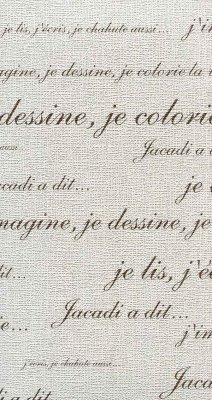 je lis, j'écris, je chahute aussi... j'i
agine, je dessine, je colorie la
dessine, je colorie
aussi
Jacadi a dit...
cadi a dit... je
magine, je dessine, je
dit... je lis, j'é
Jacadi a dit...
e... j'im
j'écris, je chahute aussi...
Jaca
a dit...